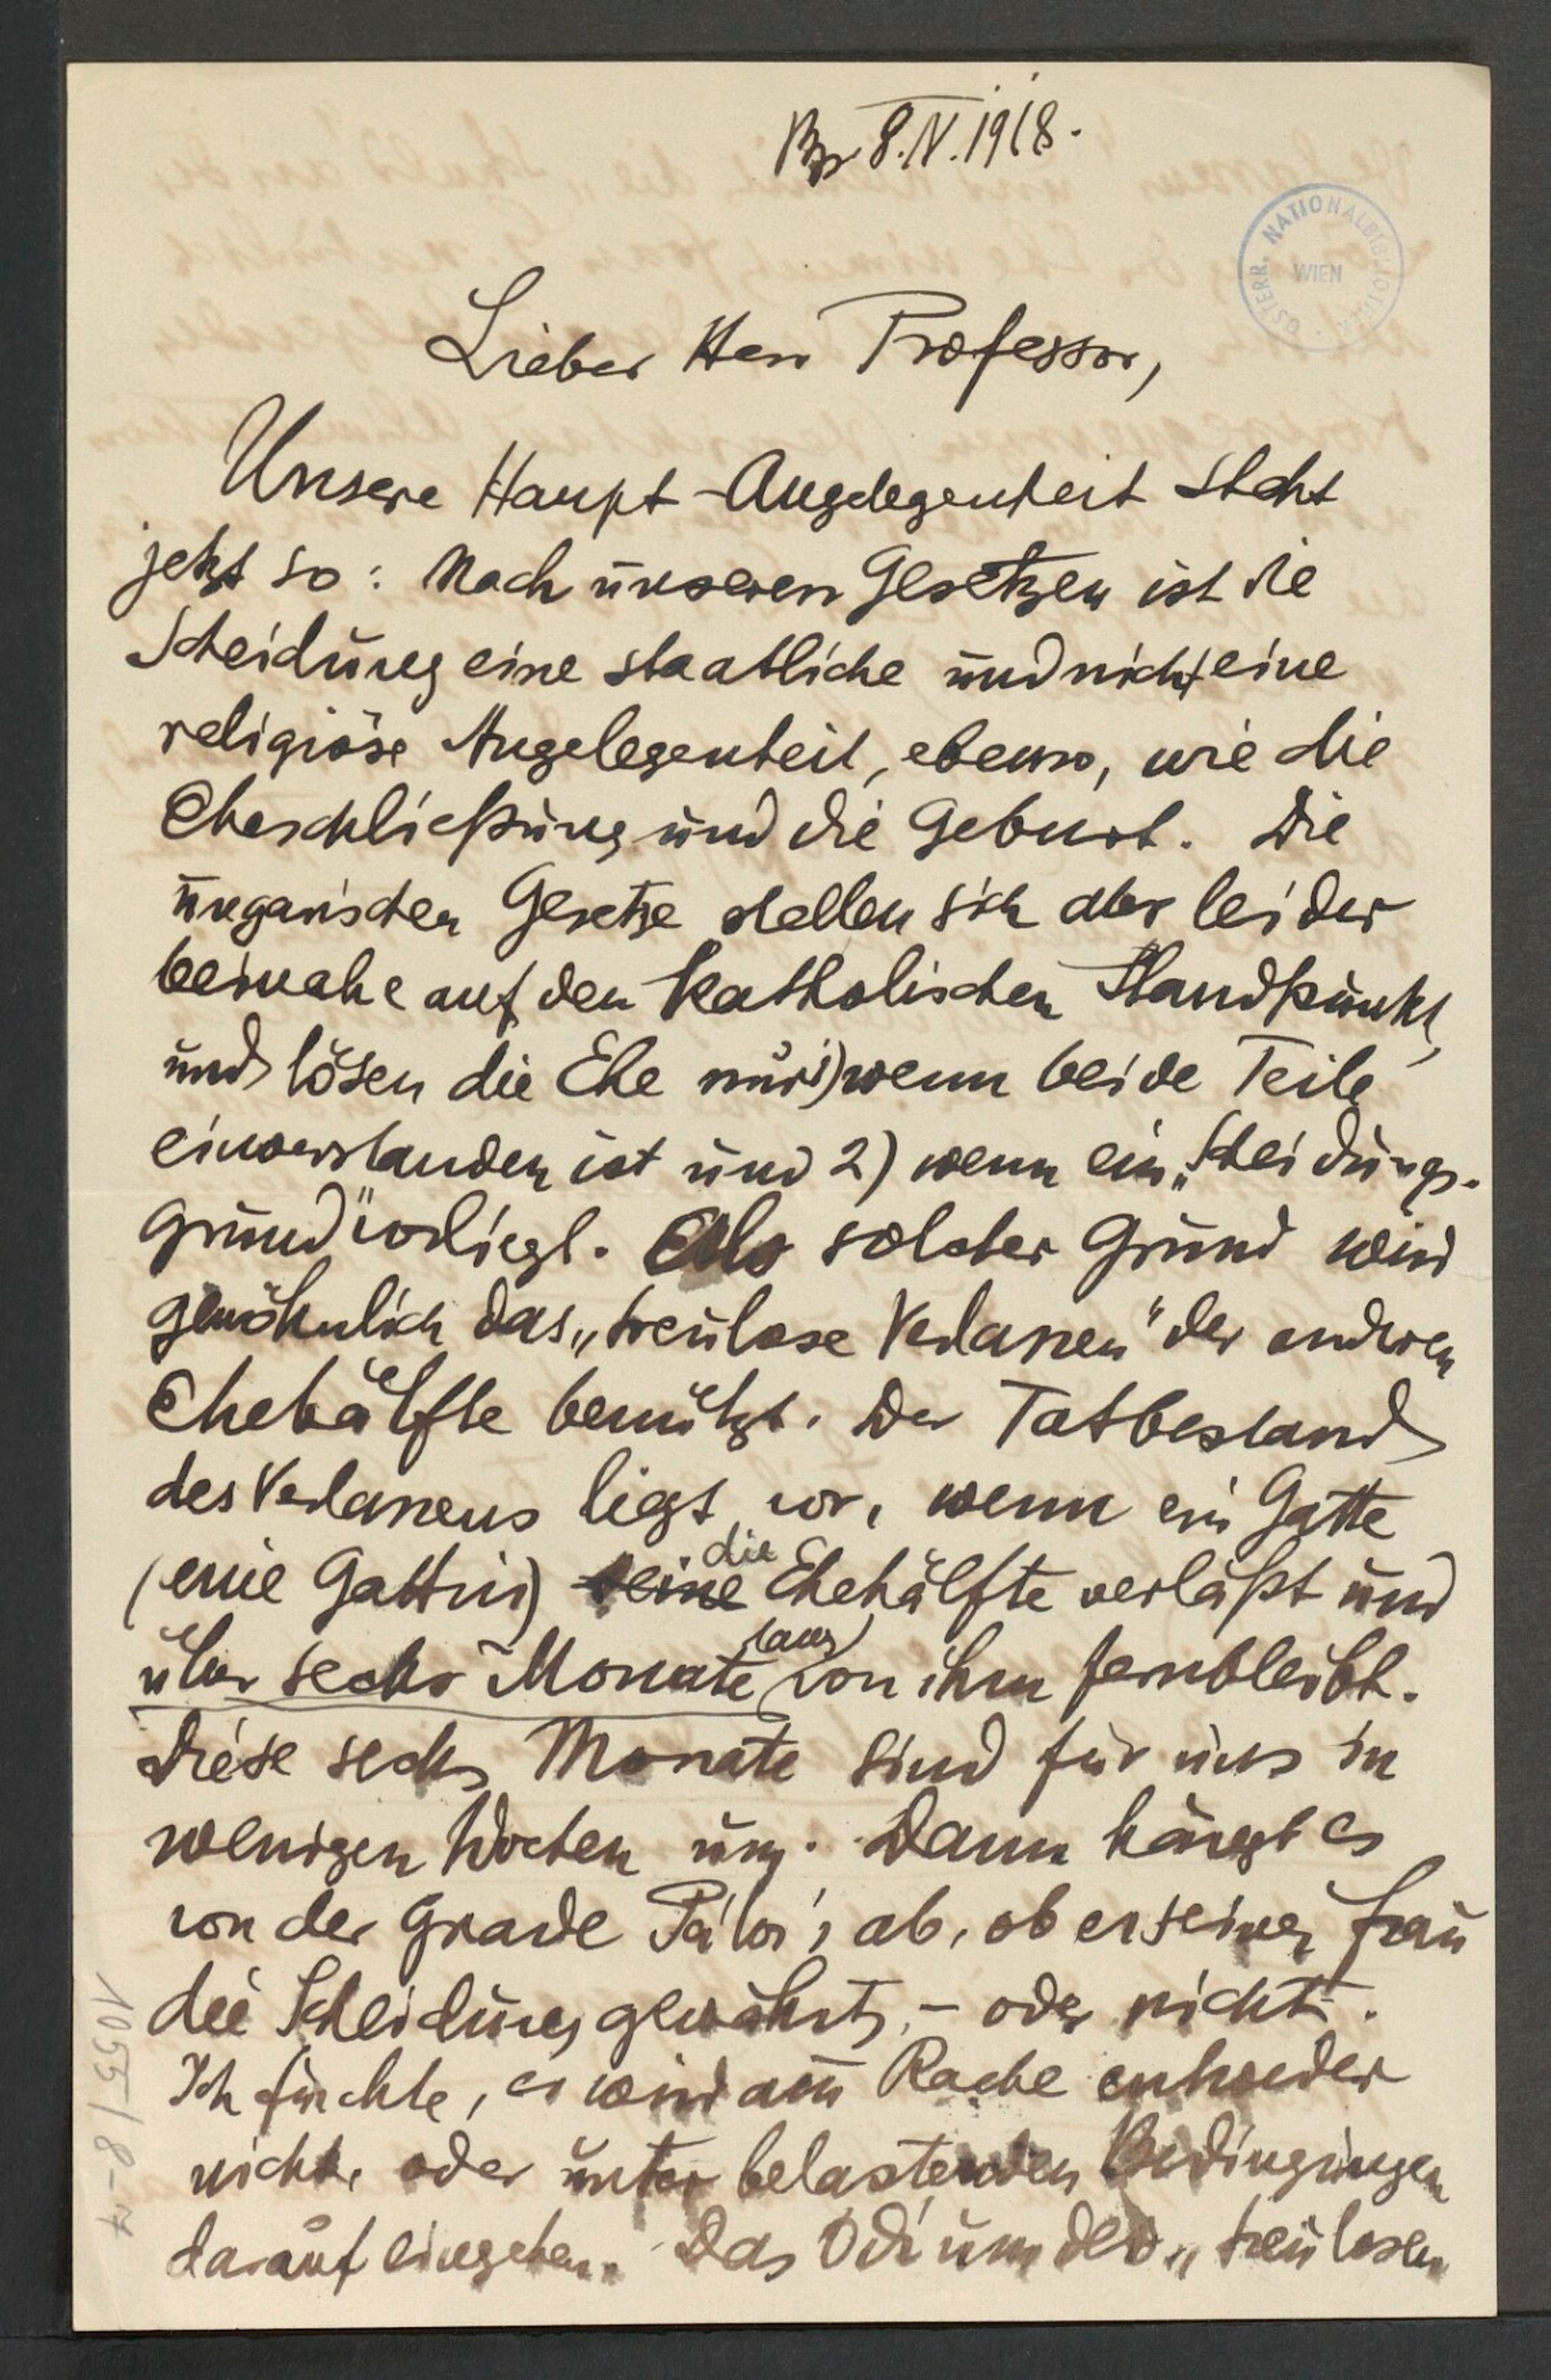 Bp 8.IV.1918.
ÖSTERR. NATIONALBIBLIOTHEK
WIEN
Lieber Herr Professor,
Unsere Haupt-Angelegenheit steht
jetzt so: Nach unseren Gesetzen ist die
Scheidung eine staatliche und nicht eine
religiöse Angelegenheit, ebenso, wie die
Eheschließung und die Geburt. Die
ungarischen Gesetze stellen sich aber leider
beinahe auf den katholischen Standpunkt,
und lösen die Ehe nur 1) wenn beide Teile
einverstanden ist und 2) wenn ein „Scheidungs-
grund" vorliegt. Als solcher Grund wird
gewöhnlich das „treulose Verlassen" der anderen
Ehehälfte benützt. Der Tatbestand
des Verlassens liegt vor, wenn ein Gatte
(eine Gattin) seine die Ehehälfte verläßt und
über sechs Monate lang von ihm fernbleibt.
Diese sechs Monate sind für uns in
wenigen Wochen um. Dann hängt es
von der Gnade Pálos's ab, ob er seiner Frau
die Scheidung gewährt, – oder nicht.
Ich fürchte, er wird aus Rache entweder
nicht, oder unter belastenden Bedingungen
darauf eingehen. Das Odium des „treulosen
1055/8-7